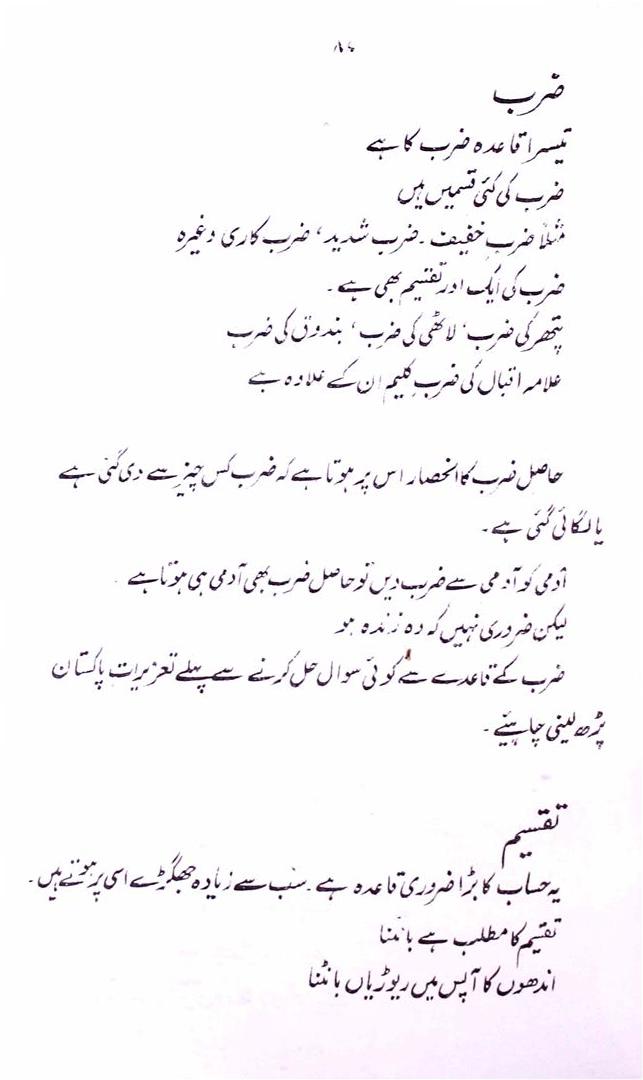 ضرب
تیسرا قاعدہ ضرب کا ہے
ضرب کی کئی قسمیں ہیں
مثلاً ضرب خفیف ۔ ضرب شدید ، ضرب کاری وغیرہ
ضرب کی ایک اور تقسیم بھی ہے ۔
پتھر کی ضرب ، لاٹھی کی ضرب ، بندوق کی ضرب
علامہ اقبال کی ضربِ کلیم ان کے علاوہ ہے
حاصل ضرب کا انحصار اس پر ہوتا ہے کہ ضرب کس چیز سے دی گئی ہے
یا لگائی گئی ہے ۔
آدمی کو آدمی سے ضرب دیں تو حاصل ضرب بھی آدمی ہی ہوتا ہے
لیکن ضروری نہیں کہ وہ زندہ ہو
ضرب کے قاعدے سے کوئی سوال حل کرنے سے پہلے تعزیراتِ پاکستان
پڑھ لینی چاہیئے ۔
تقسیم
یہ حساب کا بڑا ضروری قاعدہ ہے ۔ سب سے زیادہ جھگڑے اسی پر ہوتے ہیں ۔
تقسیم کا مطلب ہے بانٹنا
اندھوں کا آپس میں ریوڑیاں بانٹنا